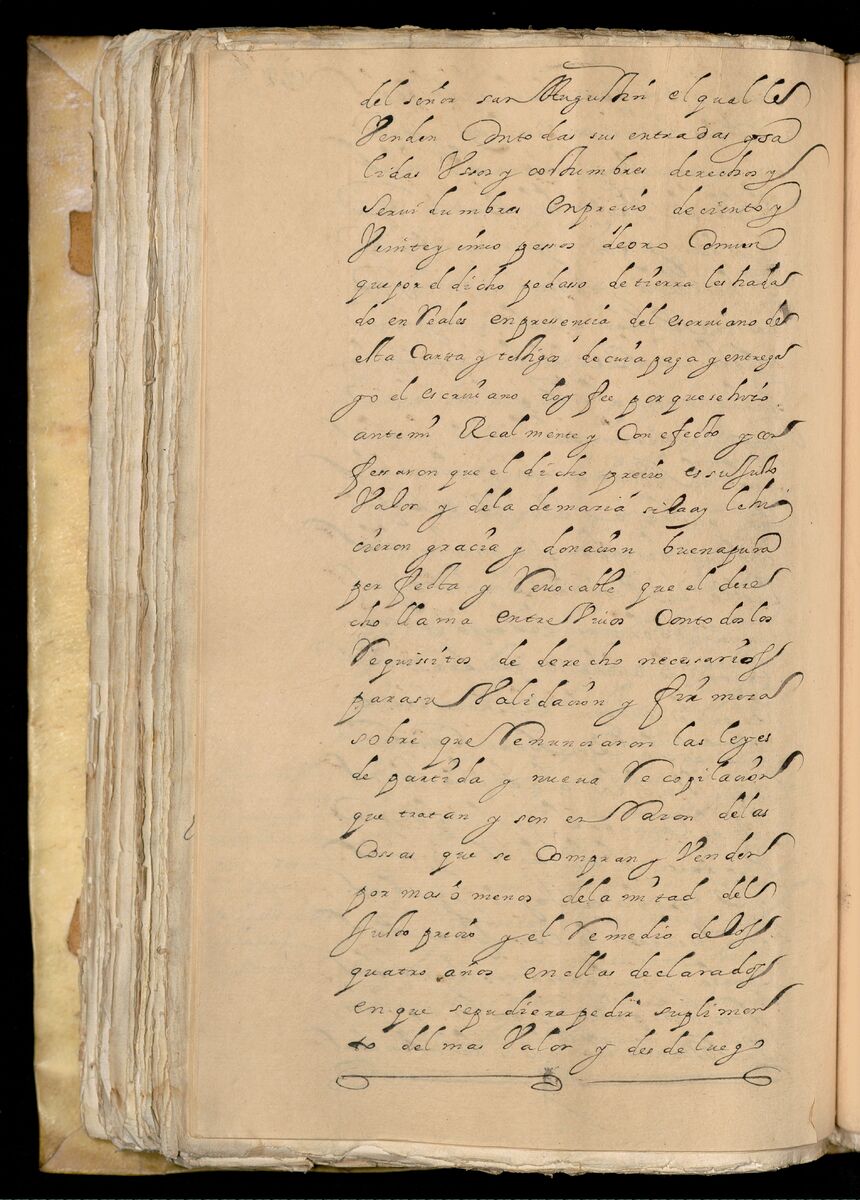 del señor san Augustin el qual les
Venden Con todas sus entradas y sa
lidas Vsos y costumbres derechos y
serui dumbres en precio de ciento y
Veinte y cinco pessos de oro Comun
que por el dicho pedasso de tierra les ha da
do en Reales en presencia del escriuano de
esta Carta y testigos de cuia paga y entrega
yo el escriuano doy fee por que se hizo
ante mi Real mente y Con efecto y con
fessaron que el dicho precio es su justo
Valor y de la demasia si la ay le hi
cieron gracia y donacion buena pura
perfecta y Reuocable que el dere
cho llama entre Viuos Con todos los
Requisitos de derecho necessarios
para su Validacion y firmeza
sobre que Renunciaron las leyes
de partida y nueua Recopilacion
que tratan y son en Razon de las
Cossas que se Compran y Venden
por mas o menos de la mitad del
Justo precio y el Remedio de los
quatro años en ellas declarados
en que se pudiera pedir suplimen
to del mas Valor y desde luego